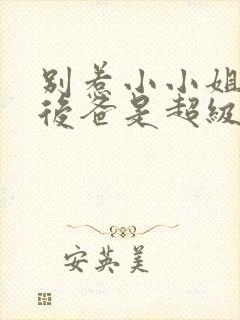 别惹小小姐
後爸是超級
安英美